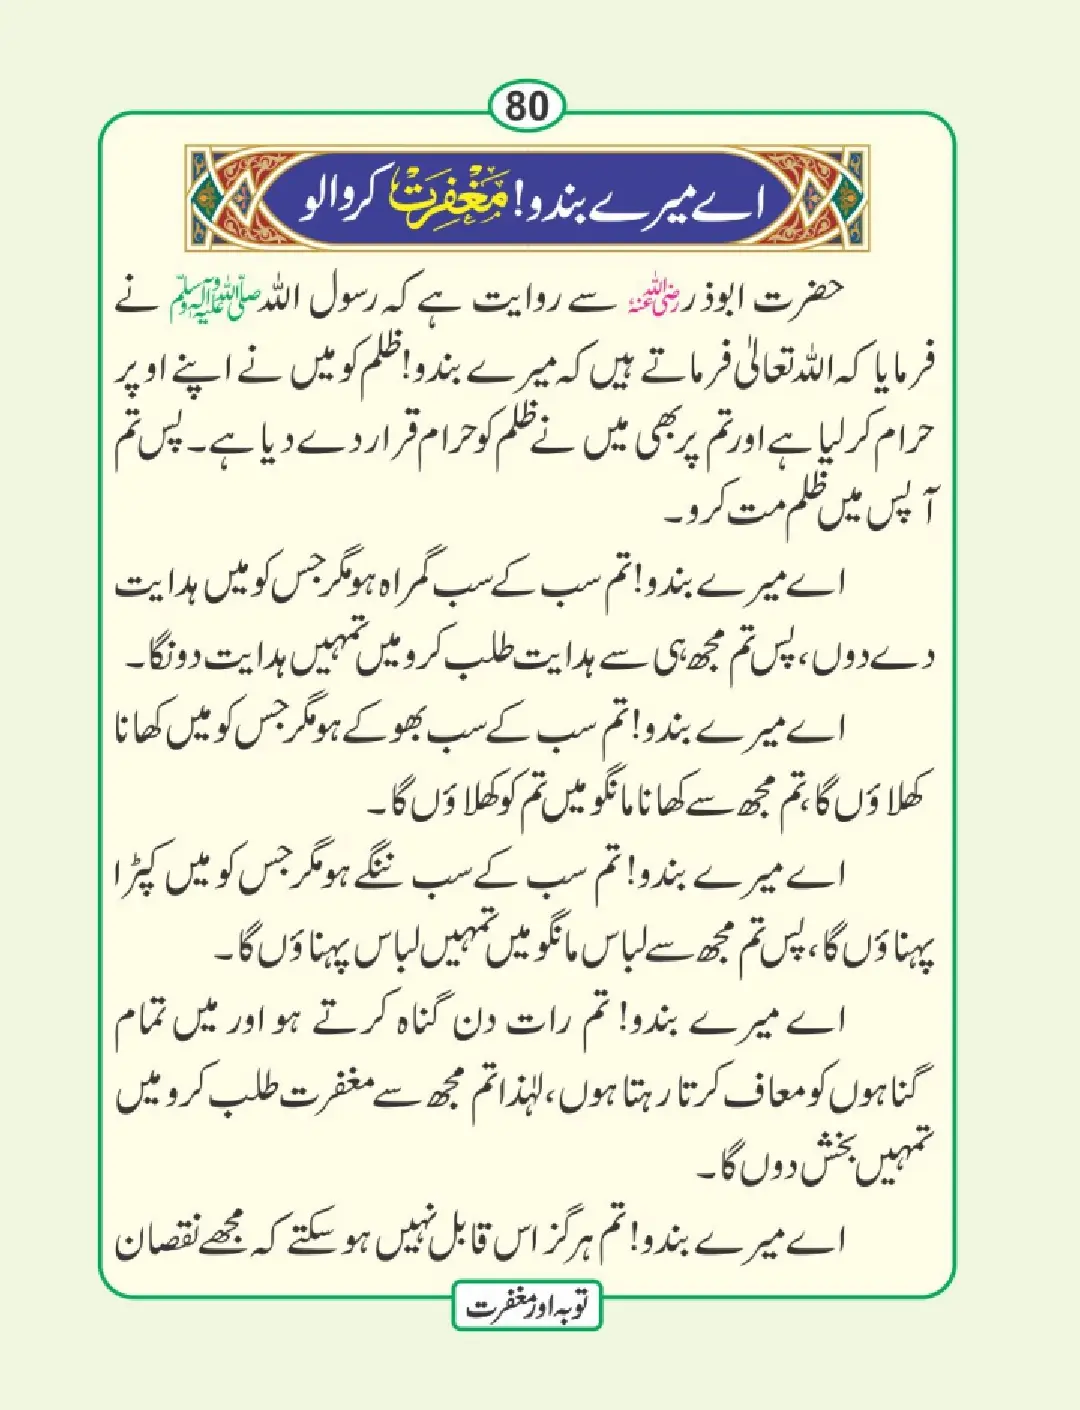 80
اے میرے بندو! مَغْفِرَتْ کروالو
حضرت ابوذر رضی اللہ عنہ سے روایت ہے کہ رسول اللہ صلی اللہ علیہ وآلہ وسلم نے
فرمایا کہ اللہ تعالیٰ فرماتے ہیں کہ میرے بندو! ظلم کو میں نے اپنے اوپر
حرام کرلیا ہے اور تم پر بھی میں نے ظلم کو حرام قرار دے دیا ہے۔ پس تم
آپس میں ظلم مت کرو۔
اے میرے بندو! تم سب کے سب گمراہ ہو مگر جس کو میں ہدایت
دے دوں، پس تم مجھ ہی سے ہدایت طلب کرو میں تمہیں ہدایت دونگا۔
اے میرے بندو! تم سب کے سب بھوکے ہو مگر جس کو میں کھانا
کھلاؤں گا، تم مجھ سے کھانا مانگو میں تم کو کھلاؤں گا۔
اے میرے بندو! تم سب کے سب ننگے ہو مگر جس کو میں کپڑا
پہناؤں گا، پس تم مجھ سے لباس مانگو میں تمہیں لباس پہناؤں گا۔
اے میرے بندو! تم رات دن گناہ کرتے ہو اور میں تمام
گناہوں کو معاف کرتا رہتا ہوں، لہٰذا تم مجھ سے مغفرت طلب کرو میں
تمہیں بخش دوں گا۔
اے میرے بندو! تم ہرگز اس قابل نہیں ہوسکتے کہ مجھے نقصان
توبہ اور مغفرت